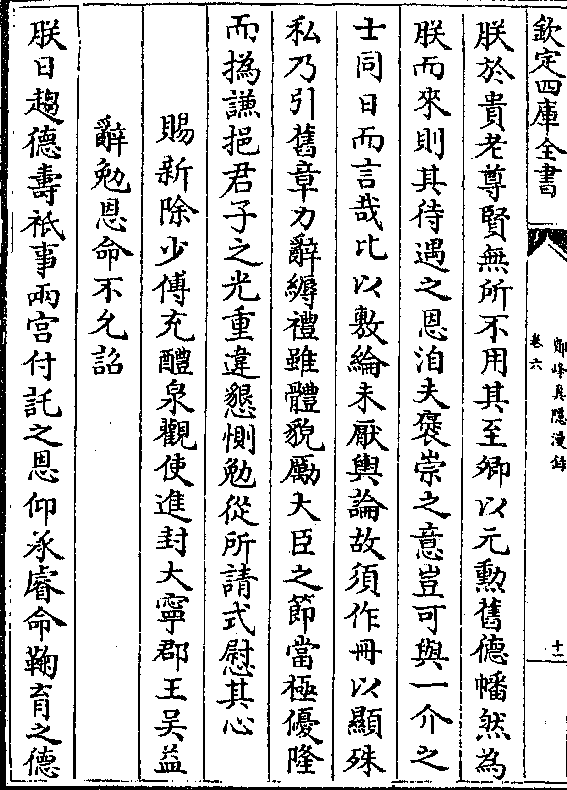 欽定四庫全書
鄮峰真隱漫錄
卷六
十一
朕於貴老尊賢無所不用其至卿以元勲舊德幡然為
朕而來則其待遇之恩洎夫褒崇之意豈可與一介之
士同日而言哉比以敷綸未厭輿論故須作冊以顯殊
私乃引舊章力辭縟禮雖體貌厲大臣之節當極優隆
而撝謙挹君子之光重違懇惻勉從所請式慰其心
賜新除少傅充醴泉觀使進封大寧郡王吴益
辭勉恩命不允詔
朕日趨德壽祗事兩宫付託之恩仰承睿命鞠育之德